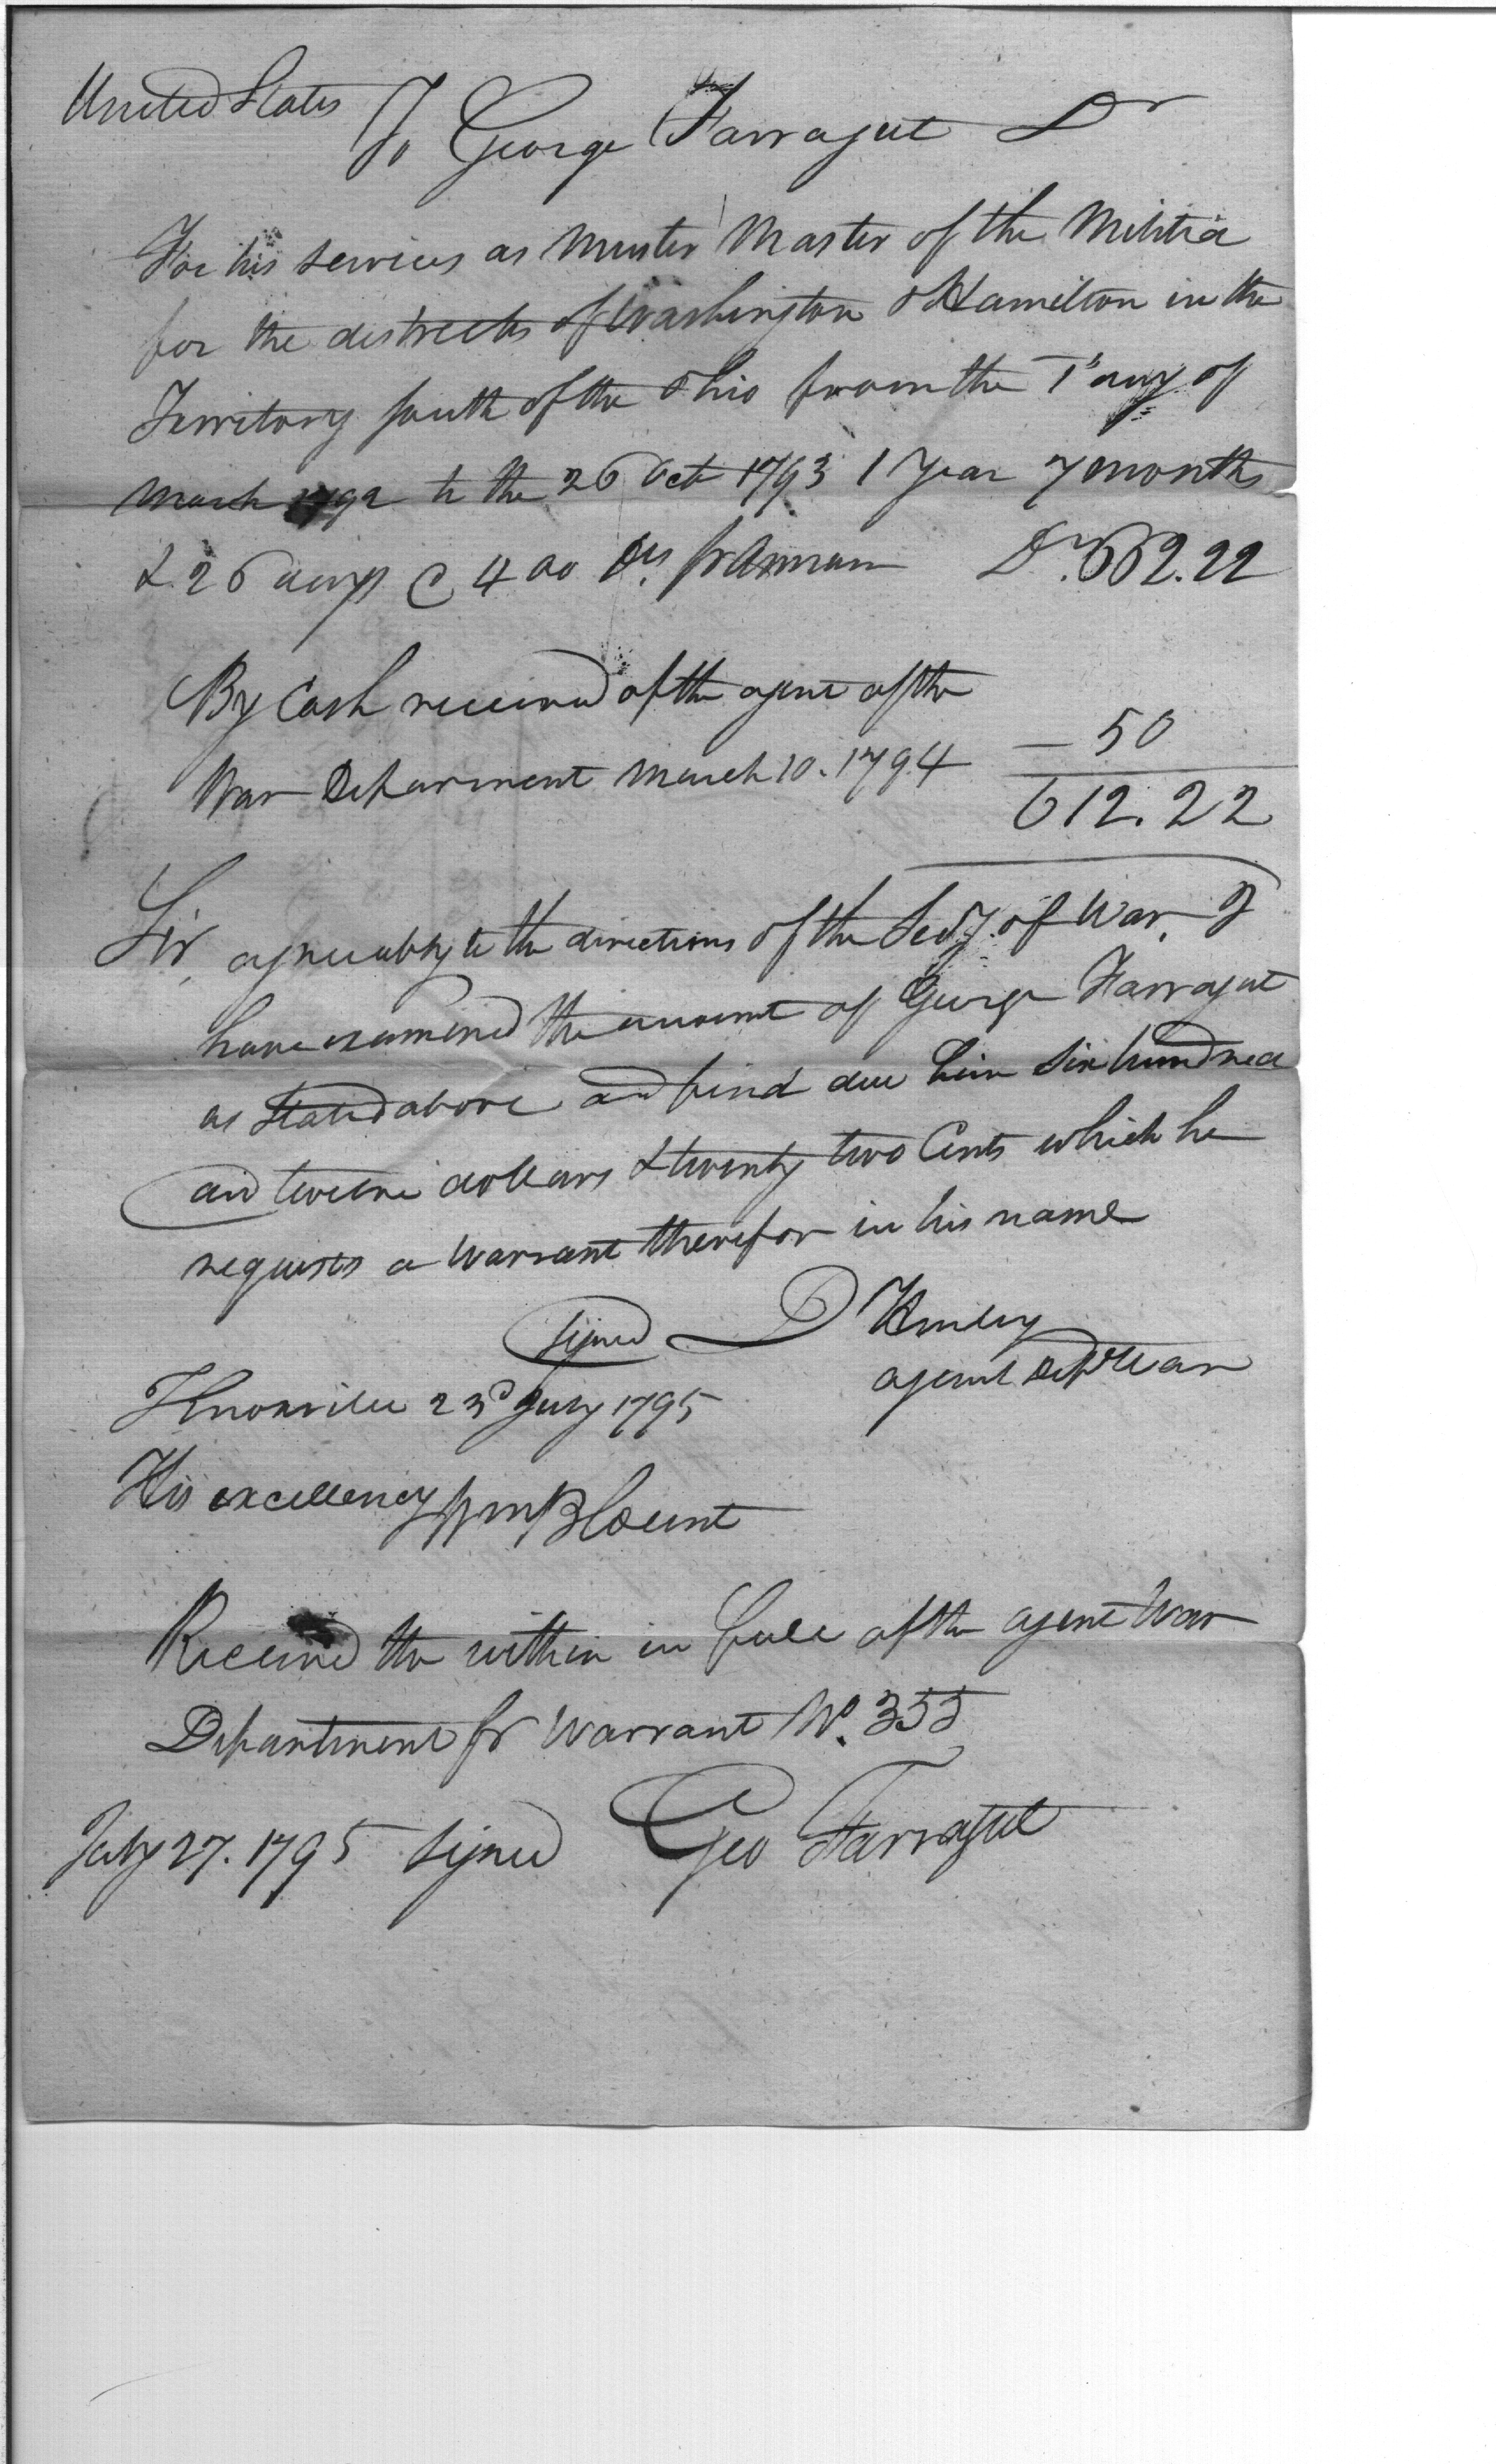 United States
To George Farragut Dr
For his services as Muster Master of the Militia
for the districts of Washington & Hamilton in the
Territory south of the Ohio from the 1st day of
March 1792 to the 26 Oct 1793 1 Year 7 months
& 26 days @ 400 Ds pr Annum Drs 662.22
By Cash received of the agent of the
War Department March 10. 1794 — 50
612.22
Sir, agreeably to the directions of the Secy. of War, I
have examined the account of George Farragut
as stated above and find due him six hundred
and twelve dollars & twenty two Cents which he
requests a Warrant therefor in his name
signed D Henley
agent Dept War
Knoxville 23d July 1795
His excellency Wm Blount
Received the within in full of the agent War
Department pr Warrant No. 355
July 27. 1795 signed Geo Farragut